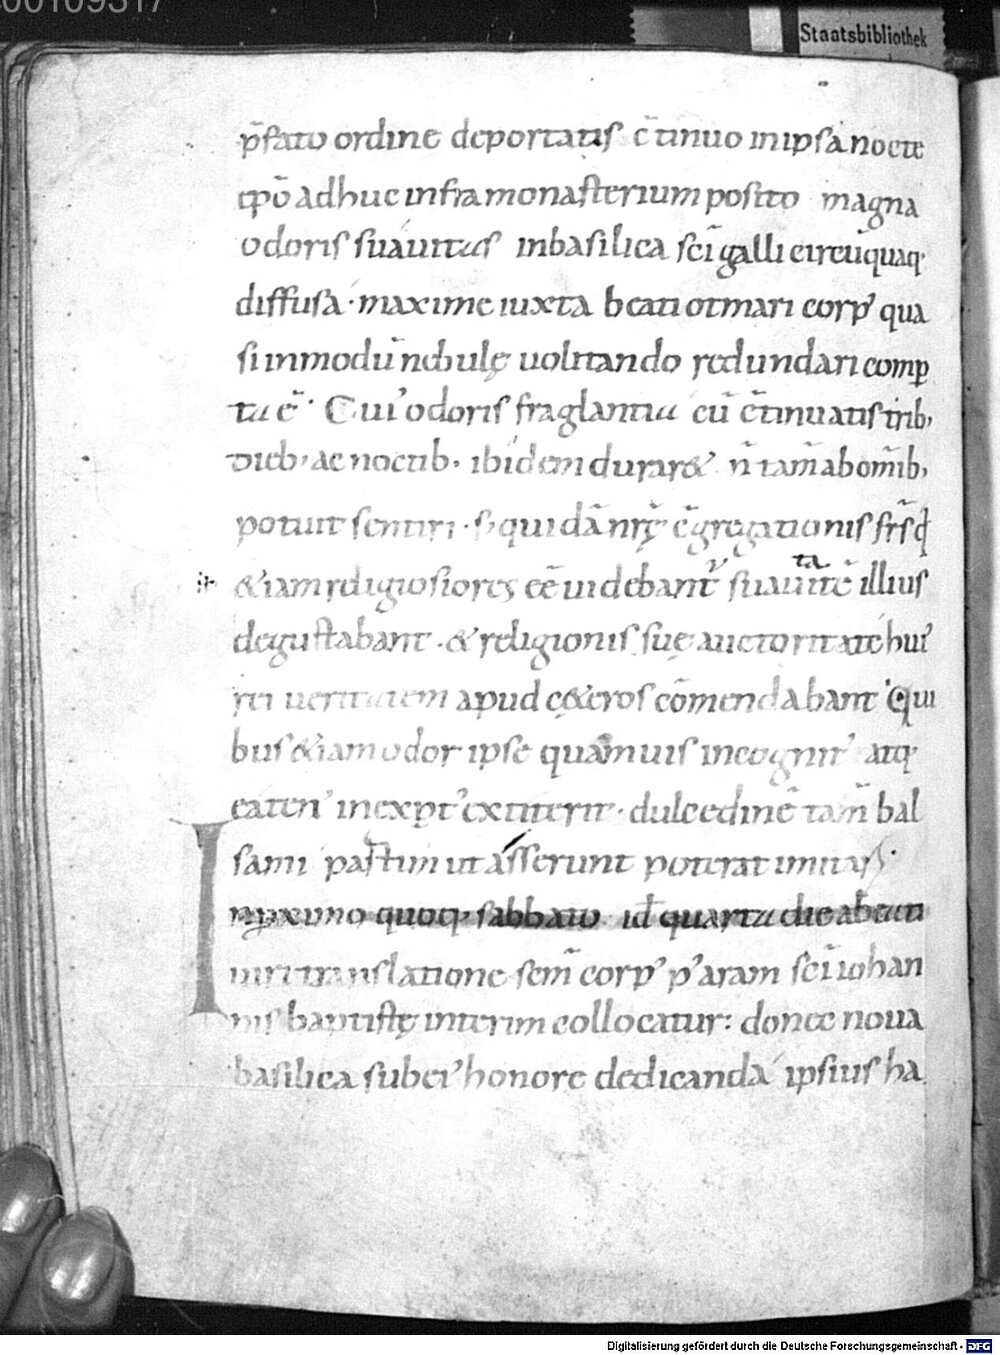 00109317
Staatsbibliothek
p̄fato ordine deportatis c̄tinuo in ipsa nocte
cpō adhuc infra monasterium posito magna
odoris suauitas in basilica sc̄i galli circūquaq;
diffusa · maxime iuxta beati otmari corp' qua
si in modū nebulę uolitando redundari comp
ta ē · Cui' odoris fraglantia cū c̄tinuatis trib;
dieb; ac noctib; ibidem durar& n̄ tam̄ ab om̄ib;
potuit sentiri · s; quidā nrę c̄gregationis fr̄s q
&iam religiosiores eē uidebant' suauitatē illius
degustabant · & religionis suę auctoritate hui'
rei ueritatem apud c&eros cōmendabant Qui
bus &iam odor ipse quamuis incognit' atq;
eaten' inexpt' extiterit · dulcedinē tam̄ bal
sami passim ut asserunt poterat imitari ·
In pximo quoq; sabbato id quarta die ab eati
uiri translatione sem̄ corp' p' aram sc̄i iohan
nis baptistę interim collocatur: donec noua
basilica sub ei' honore dedicanda ipsius ha
Digitalisierung gefördert durch die Deutsche Forschungsgemeinschaft - DFG